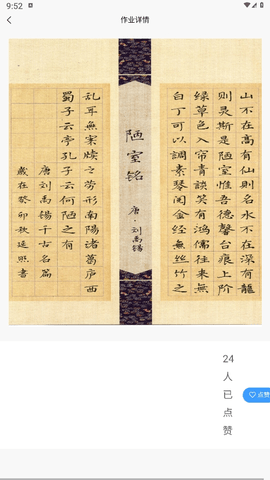 9:52
85
作业详情
山不在高有仙則名水不在深有龍
则灵斯是陋室惟吾德馨台痕上阶
绿草色入帘青談笑有鸿儒往来無
白丁可以調素琴閲金经無丝竹之
陋室铭
唐·刘禹锡
乱耳無案牍之劳形南陽诸葛庐西
蜀子云亭孔子云何陋之有
唐刘禹锡千古名篇
歲在癸卯秋廷照書
24人已点赞
点赞